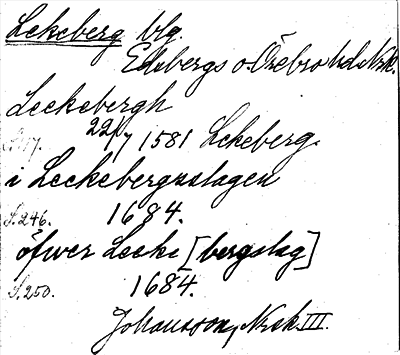 Lekeberg blg.
Edsbergs o. Örebro hd. Nrk.
Leckebergh
S. 17. 22/7 1581 Lekeberg.
i Leckebergsslagen
S. 246. 1684.
öfwer Lecke [bergslag]
S. 250. 1684.
Johansson, Nrk. III.